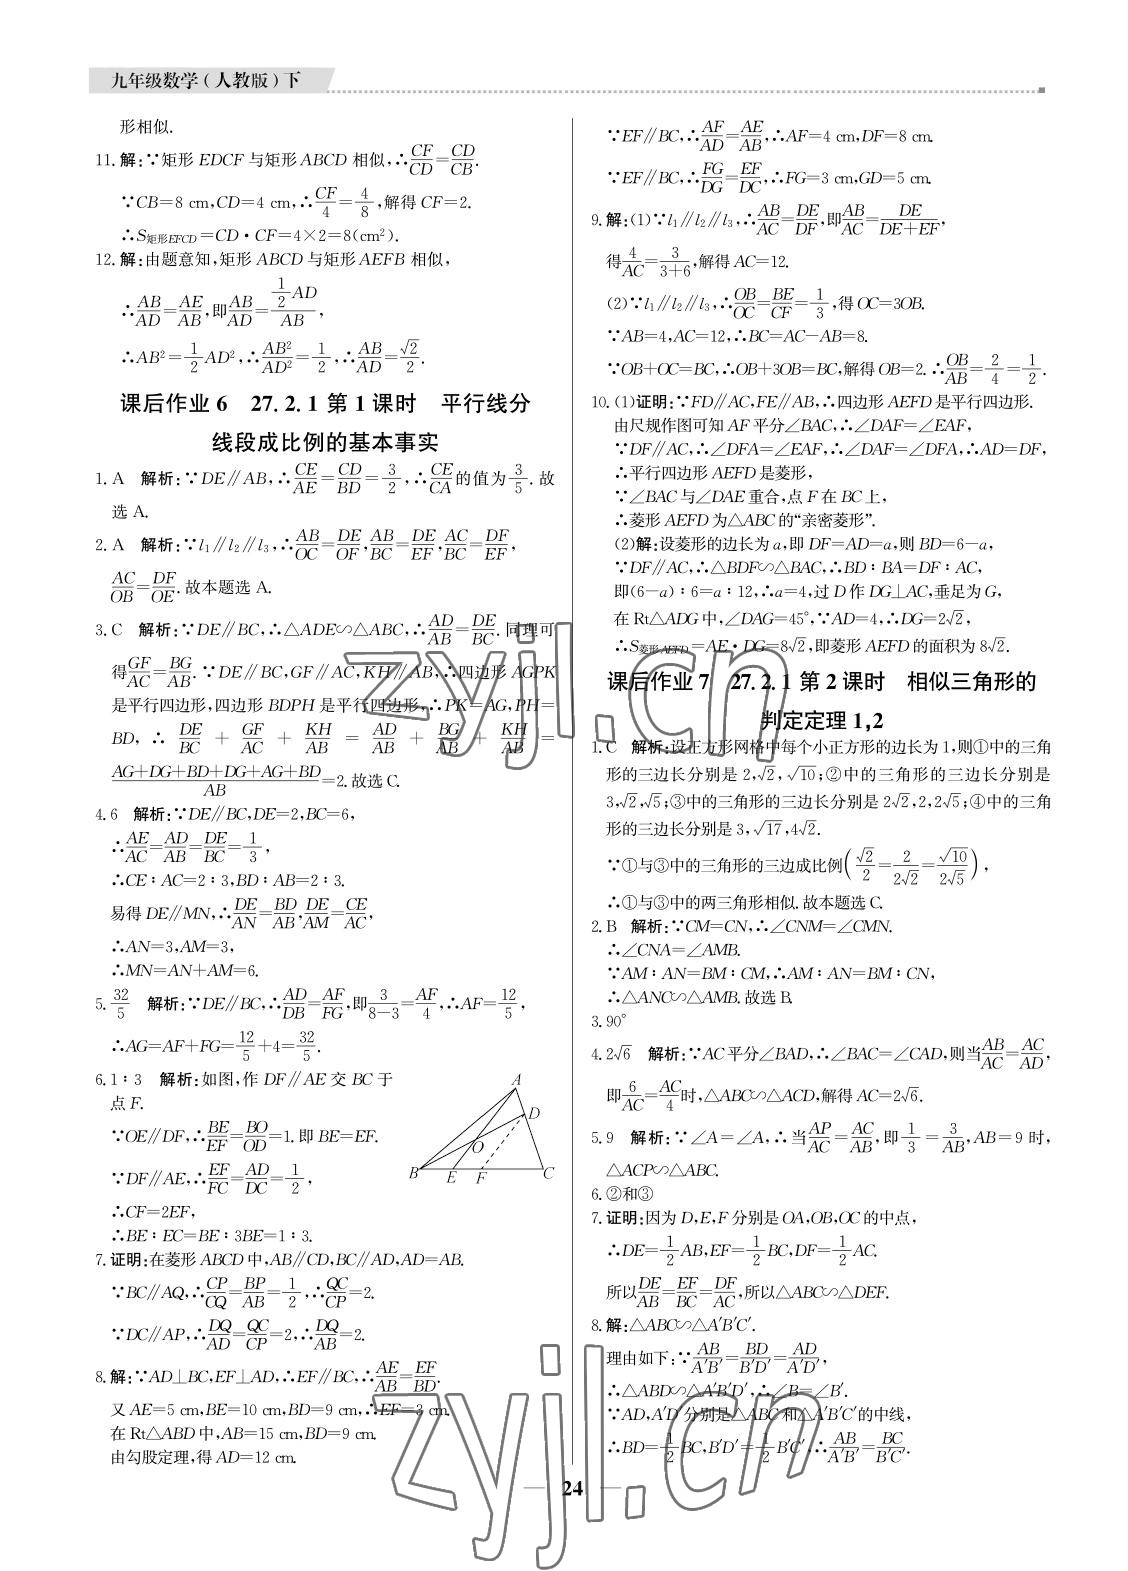 九年级数学(人教版)下
形相似.
11.解:∵矩形EDCF与矩形ABCD相似,∴CF/CD=CD/CB.
∵CB=8 cm,CD=4 cm,∴CF/4=4/8,解得CF=2.
∴S矩形EFCD=CD·CF=4×2=8(cm²).
12.解:由题意知,矩形ABCD与矩形AEFB相似,
∴AB/AD=AE/AB,即AB/AD=(1/2 AD)/AB,
∴AB²=1/2 AD²,∴AB²/AD²=1/2,∴AB/AD=√2/2.
课后作业6 27.2.1第1课时 平行线分
线段成比例的基本事实
1.A 解析:∵DE∥AB,∴CE/AE=CD/BD=3/2,∴CE/CA的值为3/5.故
选A.
2.A 解析:∵l₁∥l₂∥l₃,∴AB/OC=DE/OF,AB/BC=DE/EF,AC/BC=DF/EF,
AC/OB=DF/OE.故本题选A.
3.C 解析:∵DE∥BC,∴△ADE∽△ABC,∴AD/AB=DE/BC.同理可
得GF/AC=BG/AB.∵DE∥BC,GF∥AC,KH∥AB,∴四边形AGPK
是平行四边形,四边形BDPH是平行四边形,∴PK=AG,PH=
BD,∴DE/BC+GF/AC+KH/AB=AD/AB+BG/AB+KH/AB=
(AG+DG+BD+DG+AG+BD)/AB=2.故选C.
4.6 解析:∵DE∥BC,DE=2,BC=6,
∴AE/AC=AD/AB=DE/BC=1/3,
∴CE∶AC=2∶3,BD∶AB=2∶3.
易得DE∥MN,∴DE/AN=BD/AB,DE/AM=CE/AC,
∴AN=3,AM=3,
∴MN=AN+AM=6.
5.32/5 解析:∵DE∥BC,∴AD/DB=AF/FG,即3/(8-3)=AF/4,∴AF=12/5,
∴AG=AF+FG=12/5+4=32/5.
6.1∶3 解析:如图,作DF∥AE交BC于
点F.
∵OE∥DF,∴BE/EF=BO/OD=1.即BE=EF.
∵DF∥AE,∴EF/FC=AD/DC=1/2,
∴CF=2EF,
∴BE∶EC=BE∶3BE=1∶3.
A
D
O
B E F C
7.证明:在菱形ABCD中,AB∥CD,BC∥AD,AD=AB.
∵BC∥AQ,∴CP/CQ=BP/AB=1/2,∴QC/CP=2.
∵DC∥AP,∴DQ/AD=QC/CP=2,∴DQ/AB=2.
8.解:∵AD⊥BC,EF⊥AD,∴EF∥BC,∴AE/AB=EF/BD.
又AE=5 cm,BE=10 cm,BD=9 cm,∴EF=3 cm.
在Rt△ABD中,AB=15 cm,BD=9 cm.
由勾股定理,得AD=12 cm.
∵EF∥BC,∴AF/AD=AE/AB,∴AF=4 cm,DF=8 cm.
∵EF∥BC,∴FG/DG=EF/DC,∴FG=3 cm,GD=5 cm.
9.解:(1)∵l₁∥l₂∥l₃,∴AB/AC=DE/DF,即AB/AC=DE/(DE+EF),
得4/AC=3/(3+6),解得AC=12.
(2)∵l₁∥l₂∥l₃,∴OB/OC=BE/CF=1/3,得OC=3OB.
∵AB=4,AC=12,∴BC=AC-AB=8.
∵OB+OC=BC,∴OB+3OB=BC,解得OB=2.∴OB/AB=2/4=1/2.
10.(1)证明:∵FD∥AC,FE∥AB,∴四边形AEFD是平行四边形.
由尺规作图可知AF平分∠BAC,∴∠DAF=∠EAF,
∵DF∥AC,∴∠DFA=∠EAF,∴∠DAF=∠DFA,∴AD=DF,
∴平行四边形AEFD是菱形,
∵∠BAC与∠DAE重合,点F在BC上,
∴菱形AEFD为△ABC的“亲密菱形”.
(2)解:设菱形的边长为a,即DF=AD=a,则BD=6-a,
∵DF∥AC,∴△BDF∽△BAC,∴BD∶BA=DF∶AC,
即(6-a)∶6=a∶12,∴a=4,过D作DG⊥AC,垂足为G,
在Rt△ADG中,∠DAG=45°,∵AD=4,∴DG=2√2,
∴S菱形AEFD=AE·DG=8√2,即菱形AEFD的面积为8√2.
课后作业7 27.2.1第2课时 相似三角形的
判定定理1,2
1.C 解析:设正方形网格中每个小正方形的边长为1,则①中的三角
形的三边长分别是2,√2,√10;②中的三角形的三边长分别是
3,√2,√5;③中的三角形的三边长分别是2√2,2,2√5;④中的三角
形的三边长分别是3,√17,4√2.
∵①与③中的三角形的三边成比例(√2/2=2/2√2=√10/2√5),
∴①与③中的两三角形相似.故本题选C.
2.B 解析:∵CM=CN,∴∠CNM=∠CMN.
∴∠CNA=∠AMB.
∵AM∶AN=BM∶CM,∴AM∶AN=BM∶CN,
∴△ANC∽△AMB.故选B.
3.90°
4.2√6 解析:∵AC平分∠BAD,∴∠BAC=∠CAD,则当AB/AC=AC/AD,
即6/AC=AC/4时,△ABC∽△ACD,解得AC=2√6.
5.9 解析:∵∠A=∠A,∴当AP/AC=AC/AB,即1/3=3/AB,AB=9时,
△ACP∽△ABC.
6.②和③
7.证明:因为D,E,F分别是OA,OB,OC的中点,
∴DE=1/2 AB,EF=1/2 BC,DF=1/2 AC.
所以DE/AB=EF/BC=DF/AC,所以△ABC∽△DEF.
8.解:△ABC∽△A′B′C′.
理由如下:∵AB/A′B′=BD/B′D′=AD/A′D′,
∴△ABD∽△A′B′D′,∴∠B=∠B′.
∵AD,A′D′分别是△ABC和△A′B′C′的中线,
∴BD=1/2 BC,B′D′=1/2 B′C′,∴AB/A′B′=BC/B′C′.
24
zyjl.cn
zyjl.cn